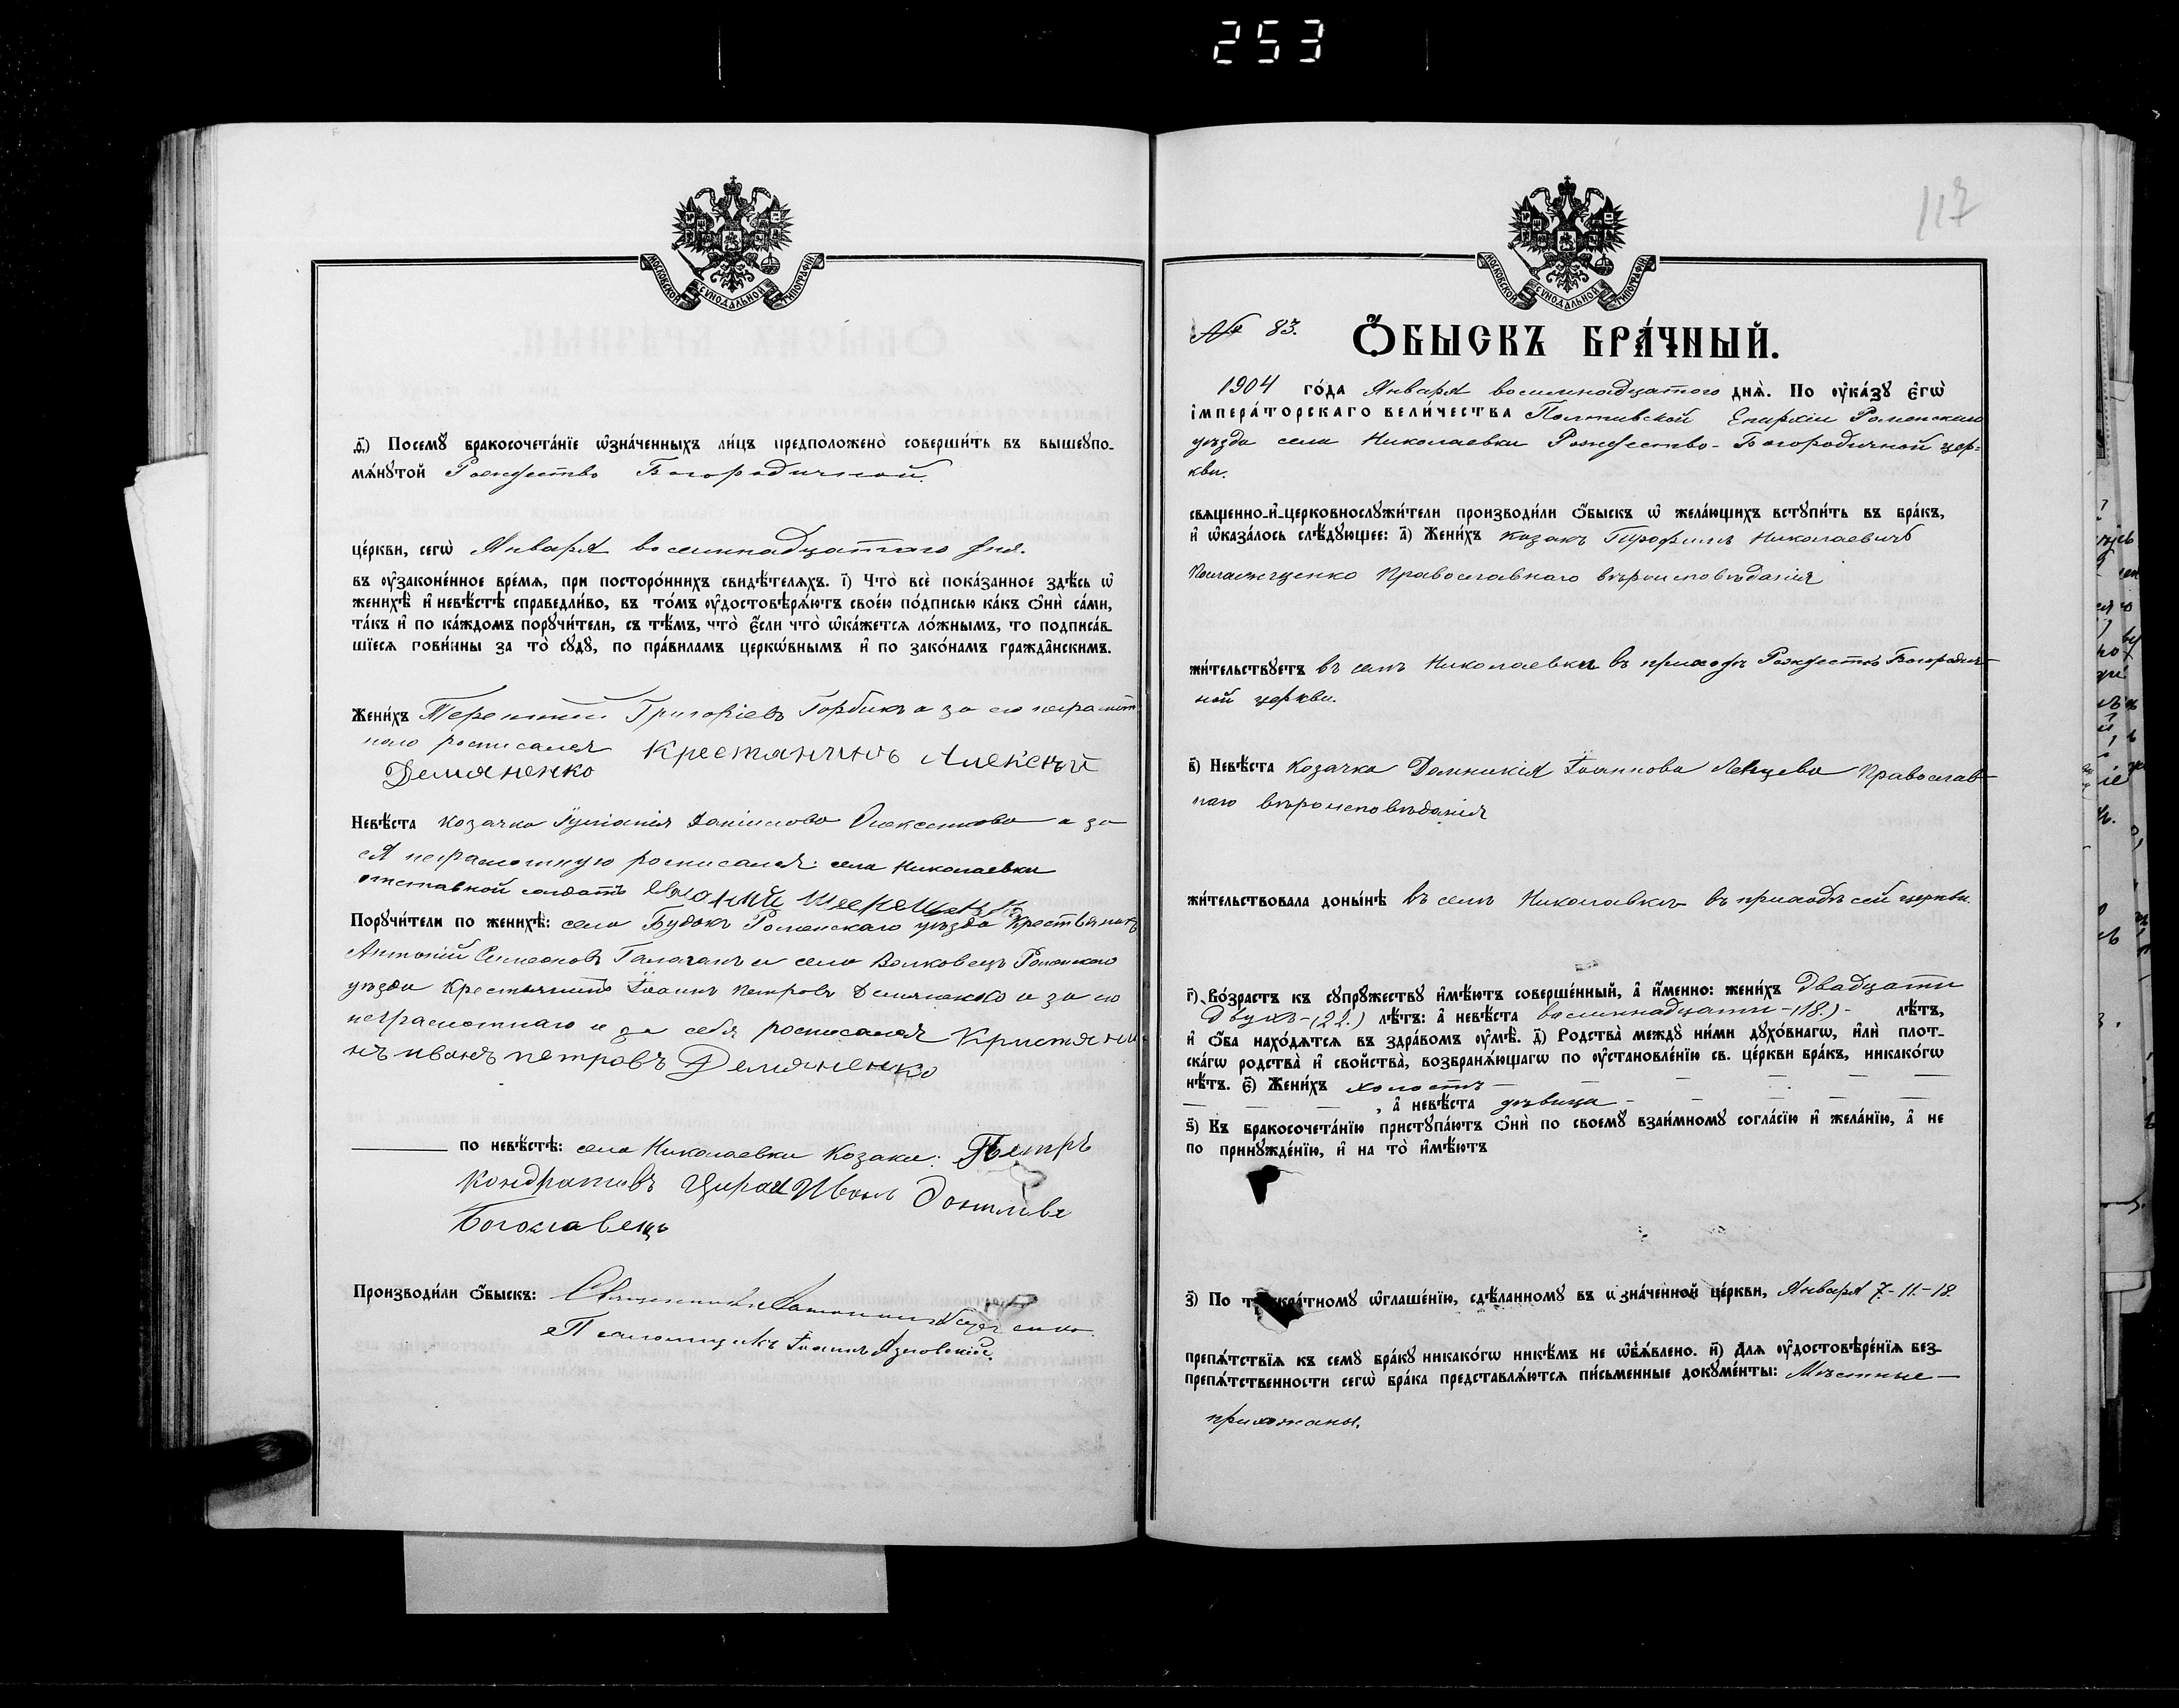 253
МОСКОВСКОЙ СѴНОДАЛЬНОЙ ТИПОГРАФІИ
д҃) Посемꙋ̀ бракосочета́нїе ѡ҆зна́ченныхъ ли́цъ предположено̀ соверши́ть въ вышеꙋпо-
мѧ́нꙋтой Рождество Богородичной
це́ркви, сегѡ̀ Января восемнадцатого дня.
въ ᲂу҆зако́ненное вре́мѧ, при посторо́ннихъ свидѣ́телѧхъ. і҃) Что̀ всѐ пока́занное здѣ́сь ѡ҆
женихѣ̀ и҆ невѣ́стѣ справедли́во, въ то́мъ ᲂу҆достовѣрѧ́ютъ свое́ю по́дписью ка́къ ѻ҆нѝ са́ми,
та́къ и҆ по ка́ждомъ порꙋчи́тели, съ тѣ́мъ, что̀ є҆́сли что̀ ѡ҆ка́жетсѧ ло́жнымъ, то подписа́в-
шїесѧ пови́нны за то̀ сꙋдꙋ̀, по пра́виламъ церко́внымъ и҆ по зако́намъ гражда̂нскимъ.
Жени́хъ Терентий Григоріевъ Горбикъ а за его неграмот
ного росписался Крестанинъ Алексѣй
Демяненко
Невѣ́ста козачка Даніилова а за
ея неграмотную росписался: села Николаевки
отставной солдатъ
Порꙋчи́тели по женихѣ̀: села Будокъ Роменскаго уѣзда Крестьянинъ
Антоній Симеоновъ Галаганъ и села Волковецъ Роменскаго
уѣзда Крестьянинъ Іоаннъ Петровъ Демяненко а за его
неграмотнаго и за себя росписался Кристяни
нъ иванъ петровъ Демяненко
по невѣ́стѣ: села Николаевки Козаки: Петръ
Кондратовъ Цира Иванъ
Богославецъ
Производи́ли ѻ҆́быскъ: Священникъ
Псаломщикъ Іоаннъ
117
МОСКОВСКОЙ СѴНОДАЛЬНОЙ ТИПОГРАФІИ
№ 83. Ѻ҆́БЫСКЪ БРА́ЧНЫЙ.
1904 го́да Января восемнадцатого днѧ̀. По ᲂу҆ка́зꙋ є҆гѡ̀
і҆мпера́торскаго вели́чества Полтавской Епархіи Роменскаго
уѣзда села Николаевки Рождество-Богородичной цер-
кви.
свѧще́нно-и҆-церковнослꙋжи́тели производи́ли ѻ҆́быскъ ѡ҆ жела́ющихъ встꙋпи́ть въ бра́къ,
и҆ ѡ҆каза́лось слѣ́дꙋющее: а҃) Жени́хъ козакъ Трофимъ Николаевичъ
Православнаго вѣроисповѣданія
жи́тельствꙋетъ въ селѣ Николаевкѣ въ приходѣ Рождество Богородич-
ной церкви.
в҃) Невѣ́ста козачка Домникія Іоаннова Православ-
наго вѣроисповѣданія
жи́тельствовала доны́нѣ въ селѣ Николаевкѣ въ приходѣ сей церкви.
г҃) Во́зрастъ къ сꙋпрꙋ́жествꙋ и҆мѣ́ютъ соверше́нный, а҆ и҆́менно: жени́хъ Двадцати
двухъ-(22.) лѣ́тъ: а҆ невѣ́ста восемнадцати-(18.)- лѣ́тъ,
и҆ ѻ҆́ба нахо́дѧтсѧ въ здра́вомъ ᲂу҆мѣ̀. д҃) Родства̀ междꙋ ни́ми дꙋхо́внагѡ, и҆лѝ плот-
ска́гѡ родства̀ и҆ сво́йства̀, возбранѧ́ющагѡ по ᲂу҆становле́нїю св. це́ркви бра́къ, никако́гѡ
нѣ́тъ. є҃) Жени́хъ холостъ —
, а҆ невѣ́ста дѣвица -
ѕ҃) Къ бракосочета́нїю пристꙋпа́ютъ ѻ҆нѝ по своемꙋ̀ взаи́мномꙋ согла́сїю и҆ жела́нїю, а҆ не
по принꙋжде́нїю, и҆ на то̀ и҆мѣ́ютъ
з҃) По кра́тномꙋ ѡ҆глаше́нїю, сдѣ́ланномꙋ въ ѡ҆зна́ченной це́ркви, Января 7.-11.-18.
препѧ́тствїѧ къ семꙋ̀ бра́кꙋ никако́гѡ никѣ́мъ не ѡ҆б̾ѧ́влено. и҃) Длѧ ᲂу҆достовѣре́нїѧ без-
препѧ́тственности сегѡ̀ бра́ка представлѧ́ютсѧ пи́сьменные докꙋме́нты: Мѣстные
прихожаны.